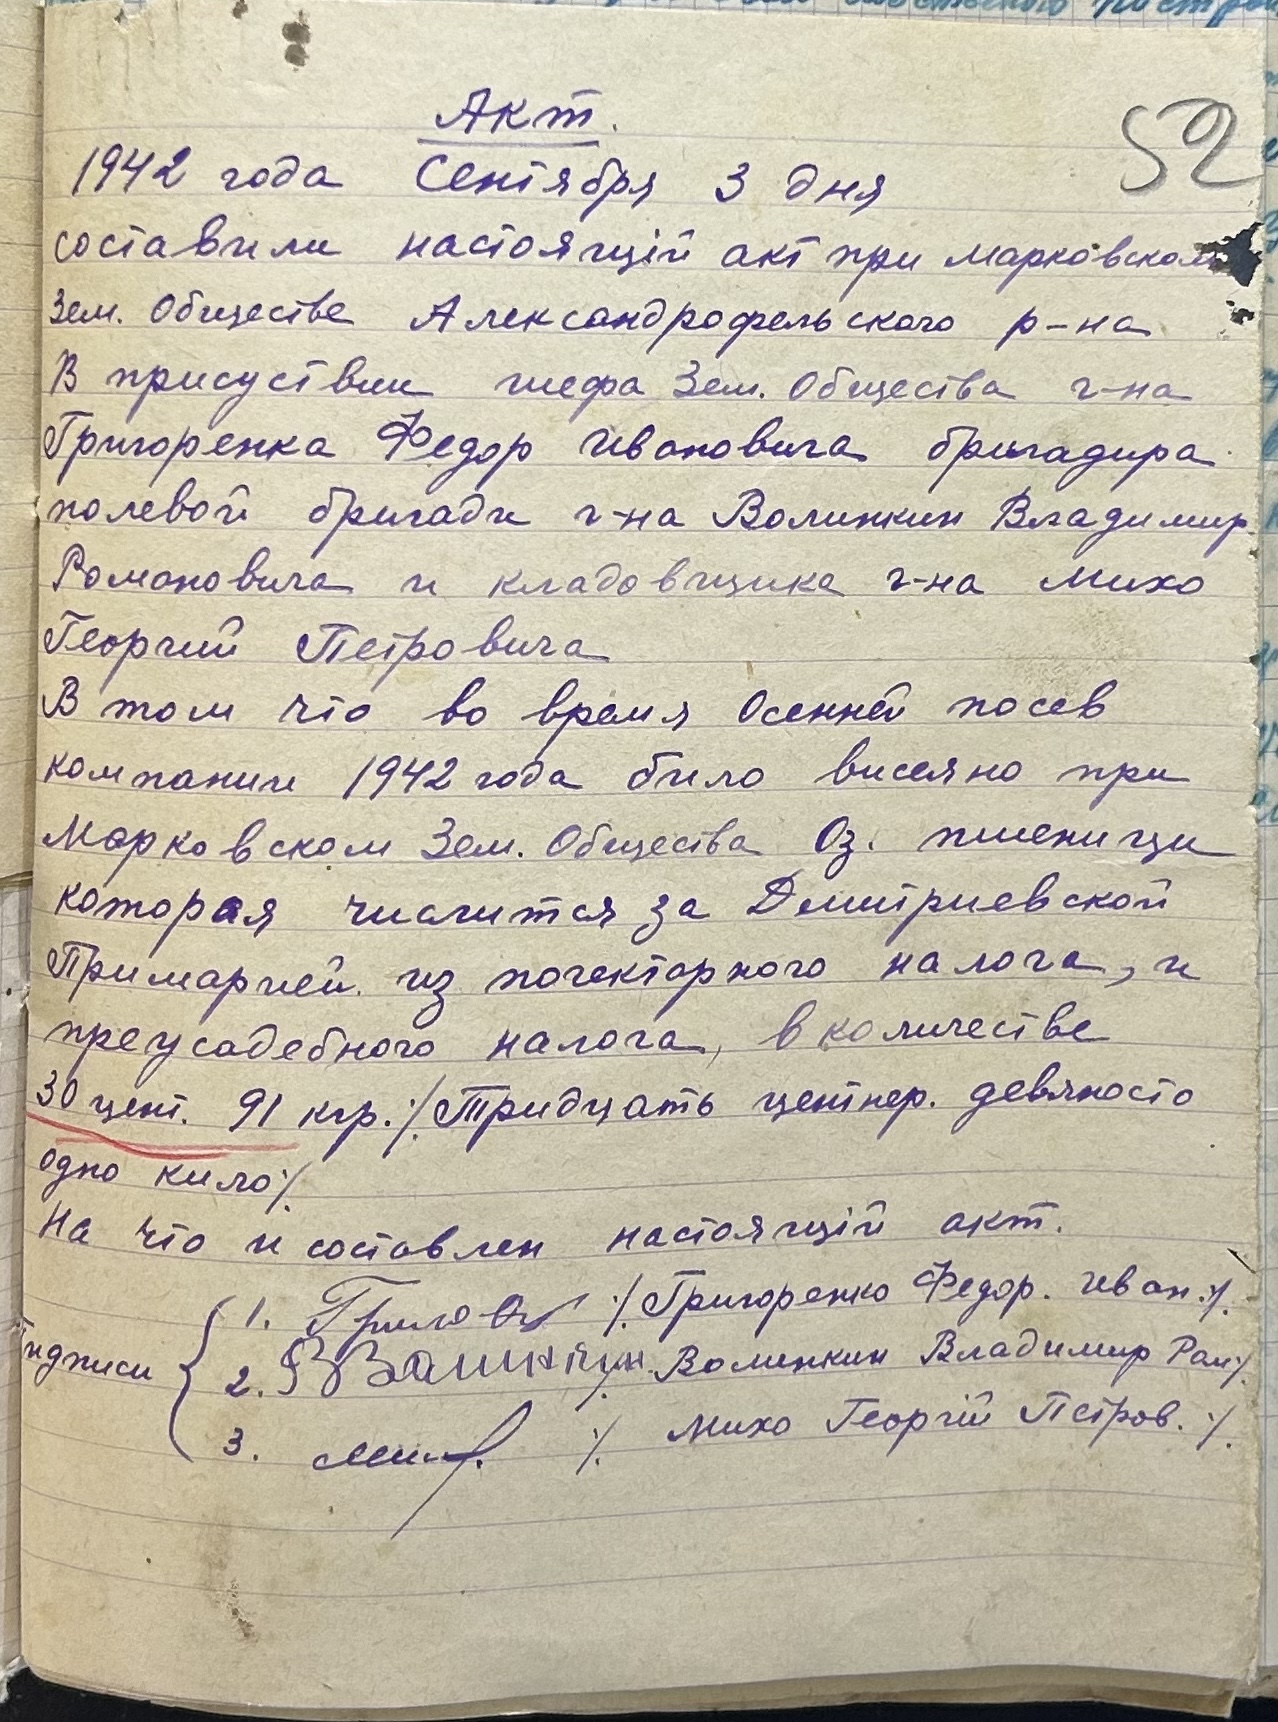 52
Акт.
1942 года Сентября 3 дня
составили настоящій акт при Марковском
Зем. Обществе Александрофельского р-на
В присуствии шефа Зем. Общества г-на
Григоренка Федор Ивановича бригадира
полевой бригади г-на Волинкин Владимир
Романовича и кладовщика г-на Михо
Георгий Петровича
В том что во время Осенней посев
компании 1942 года било висеяно при
Марковском Зем. Общества Оз. пшеници
которая числится за Дмитриевской
Примарией из погектарного налога, и
преусадебного налога, в количестве
30 цент. 91 кгр. /Тридцать центнер. девяносто
одно кило/.
На что и составлен настоящій акт.
1. /Григоренко Федор. Иван./.
2. Волинкин Владимир Ром/.
3. / Михо Георгій Петров. /.